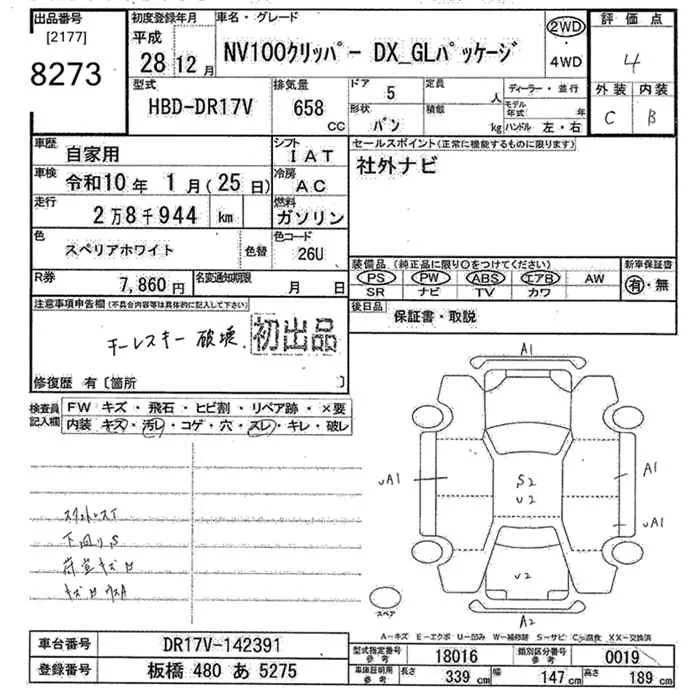 出品番号
[2177]
8273
初度登録年月
平成
28 12 月
車名・グレード
NV100クリッパー DX_GLパッケージ
2WD
・
4WD
評価点
4
外装 内装
C B
型式
HBD-DR17V
排気量
658
CC
ドア
5
形状
バン
定員
人
積載
kg
ディーラー・並行
モデル
年式 年
ハンドル 左・右
車歴
自家用
シフト
IAT
車検
令和10年 1月(25日)
冷房
AC
走行
2万8千944 km
燃料
ガソリン
色
スペリアホワイト
色替
色コード
26U
R券
7,860円
名変通知期限
月 日
セールスポイント(正常に機能するものに限ります)
社外ナビ
装備品 (純正品に限り○をつけてください)
PS PW ABS エアB AW
SR ナビ TV カワ
新車保証書
有・無
後日品
保証書・取説
注意事項申告欄(不具合内容等は具体的に記入して下さい)
キーレスキー 破壊
初出品
修復歴 有〔箇所 〕
検査員
記入欄
FW キズ・飛石・ヒビ割・リペア跡・×要
内装 キズ・汚レ・コゲ・穴・スレ・キレ・破レ
下回りS
荷室キズロ
A1
uA1
A1
uA1
S2
U2
U2
A2
スペア
A-キズ E-エクボ U-凹み W-補修跡 S-サビ C-腐食 XX-交換済
車台番号
DR17V-142391
登録番号
板橋 480 あ 5275
型式指定番号
参考
18016
類別区分番号
参考
0019
車庫証明用
参考
長さ 339 cm 幅 147 cm 高さ 189 cm